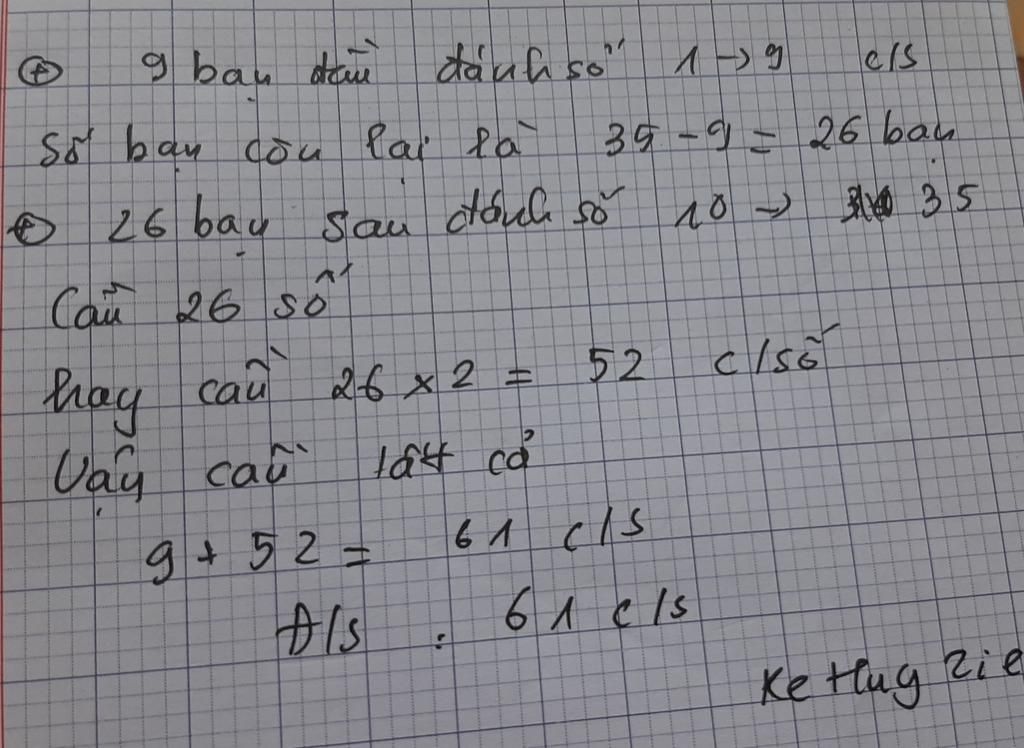 ⊕ 9 bạn đầu đánh số 1 → 9 c/s
Số bạn còn lại là 35 - 9 = 26 bạn
⊕ 26 bạn sau đánh số 10 → 35
Cần 26 số
hay cần 26 × 2 = 52 c/số
Vậy cần tất cả
9 + 52 = 61 c/s
Đ/s : 61 c/s